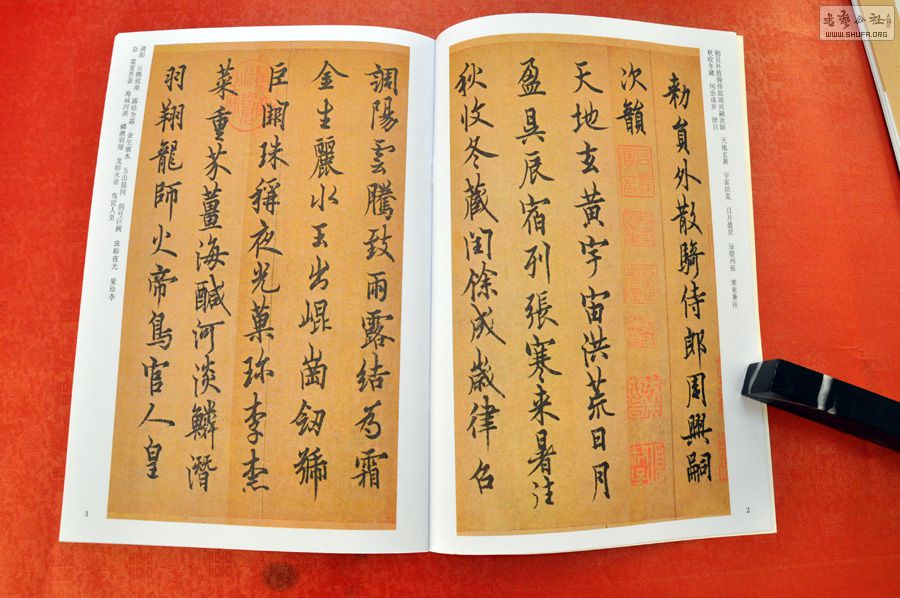 書藝公社
WWW.SHUFA.ORG
敕员外散骑侍郎周兴嗣次韵 天地玄黄 宇宙洪荒 日月盈昃 辰宿列张 寒来暑往
秋收冬藏 闰余成岁 律吕
勑員外散騎侍郎周興嗣
次韻
天地玄黃宇宙洪荒日月
盈昃辰宿列張寒来暑往
秋收冬藏閏餘成歲律召
2
調陽雲騰致雨露結為霜
金生麗水玉出崐崗劒號
巨闕珠稱夜光菓珍李柰
菜重芥薑海醎河淡鱗潛
羽翔龍師火帝鳥官人皇
调阳 云腾致雨 露结为霜 金生丽水 玉出昆冈 剑号巨阙 珠称夜光 果珍李
柰 菜重芥姜 海咸河淡 鳞潜羽翔 龙师火帝 鸟官人皇
3